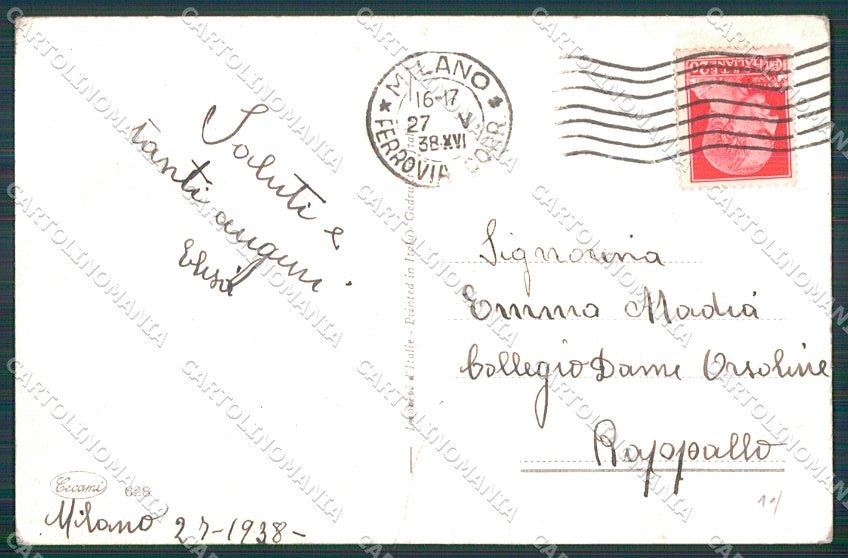 MILANO
16-17
27 V
38 XVI
FERROVIA CORR.
Saluti e
tanti auguri.
Elisa
Signorina
Emma Madiá
Collegio Dame Orsoline
Rappallo
Printed in Italy
Cecami 628
Milano 27-1938-
CARTOLINOMANIA